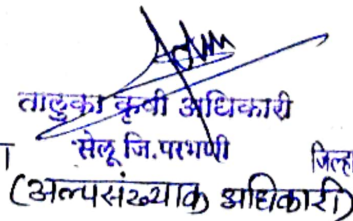 तालुका कृषी अधिकारी
सेलू जि. परभणी
जिल्हा
(अल्पसंख्याक अधिकारी)